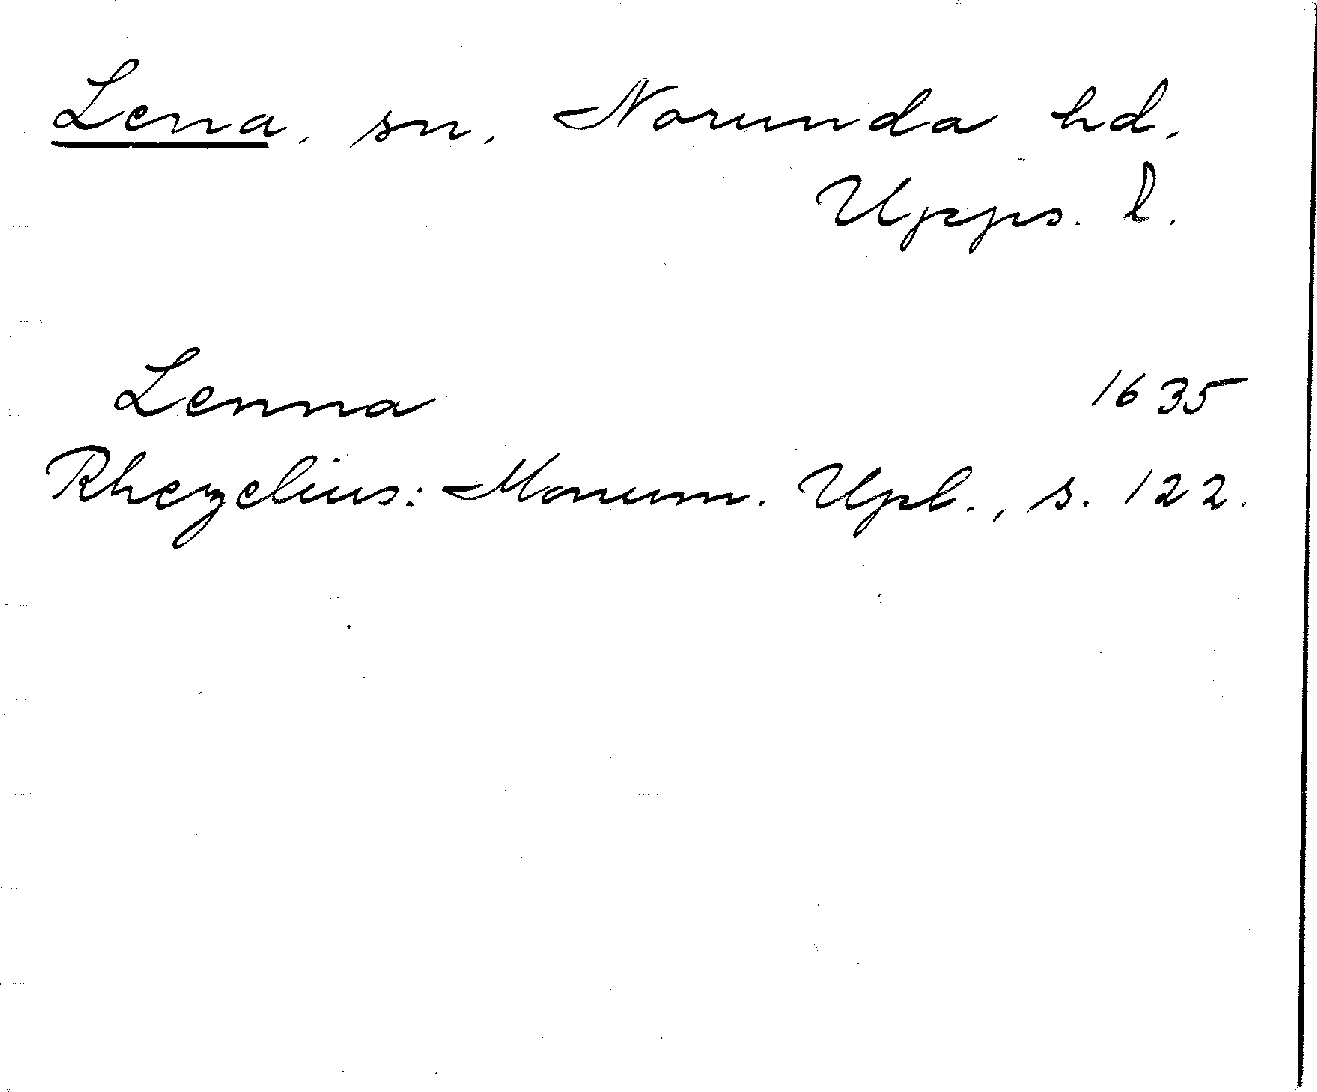 Lena, sn, Norunda hd.
Upps. l.
Lenna 1635
Rhezelius: Monum. Upl., s. 122.